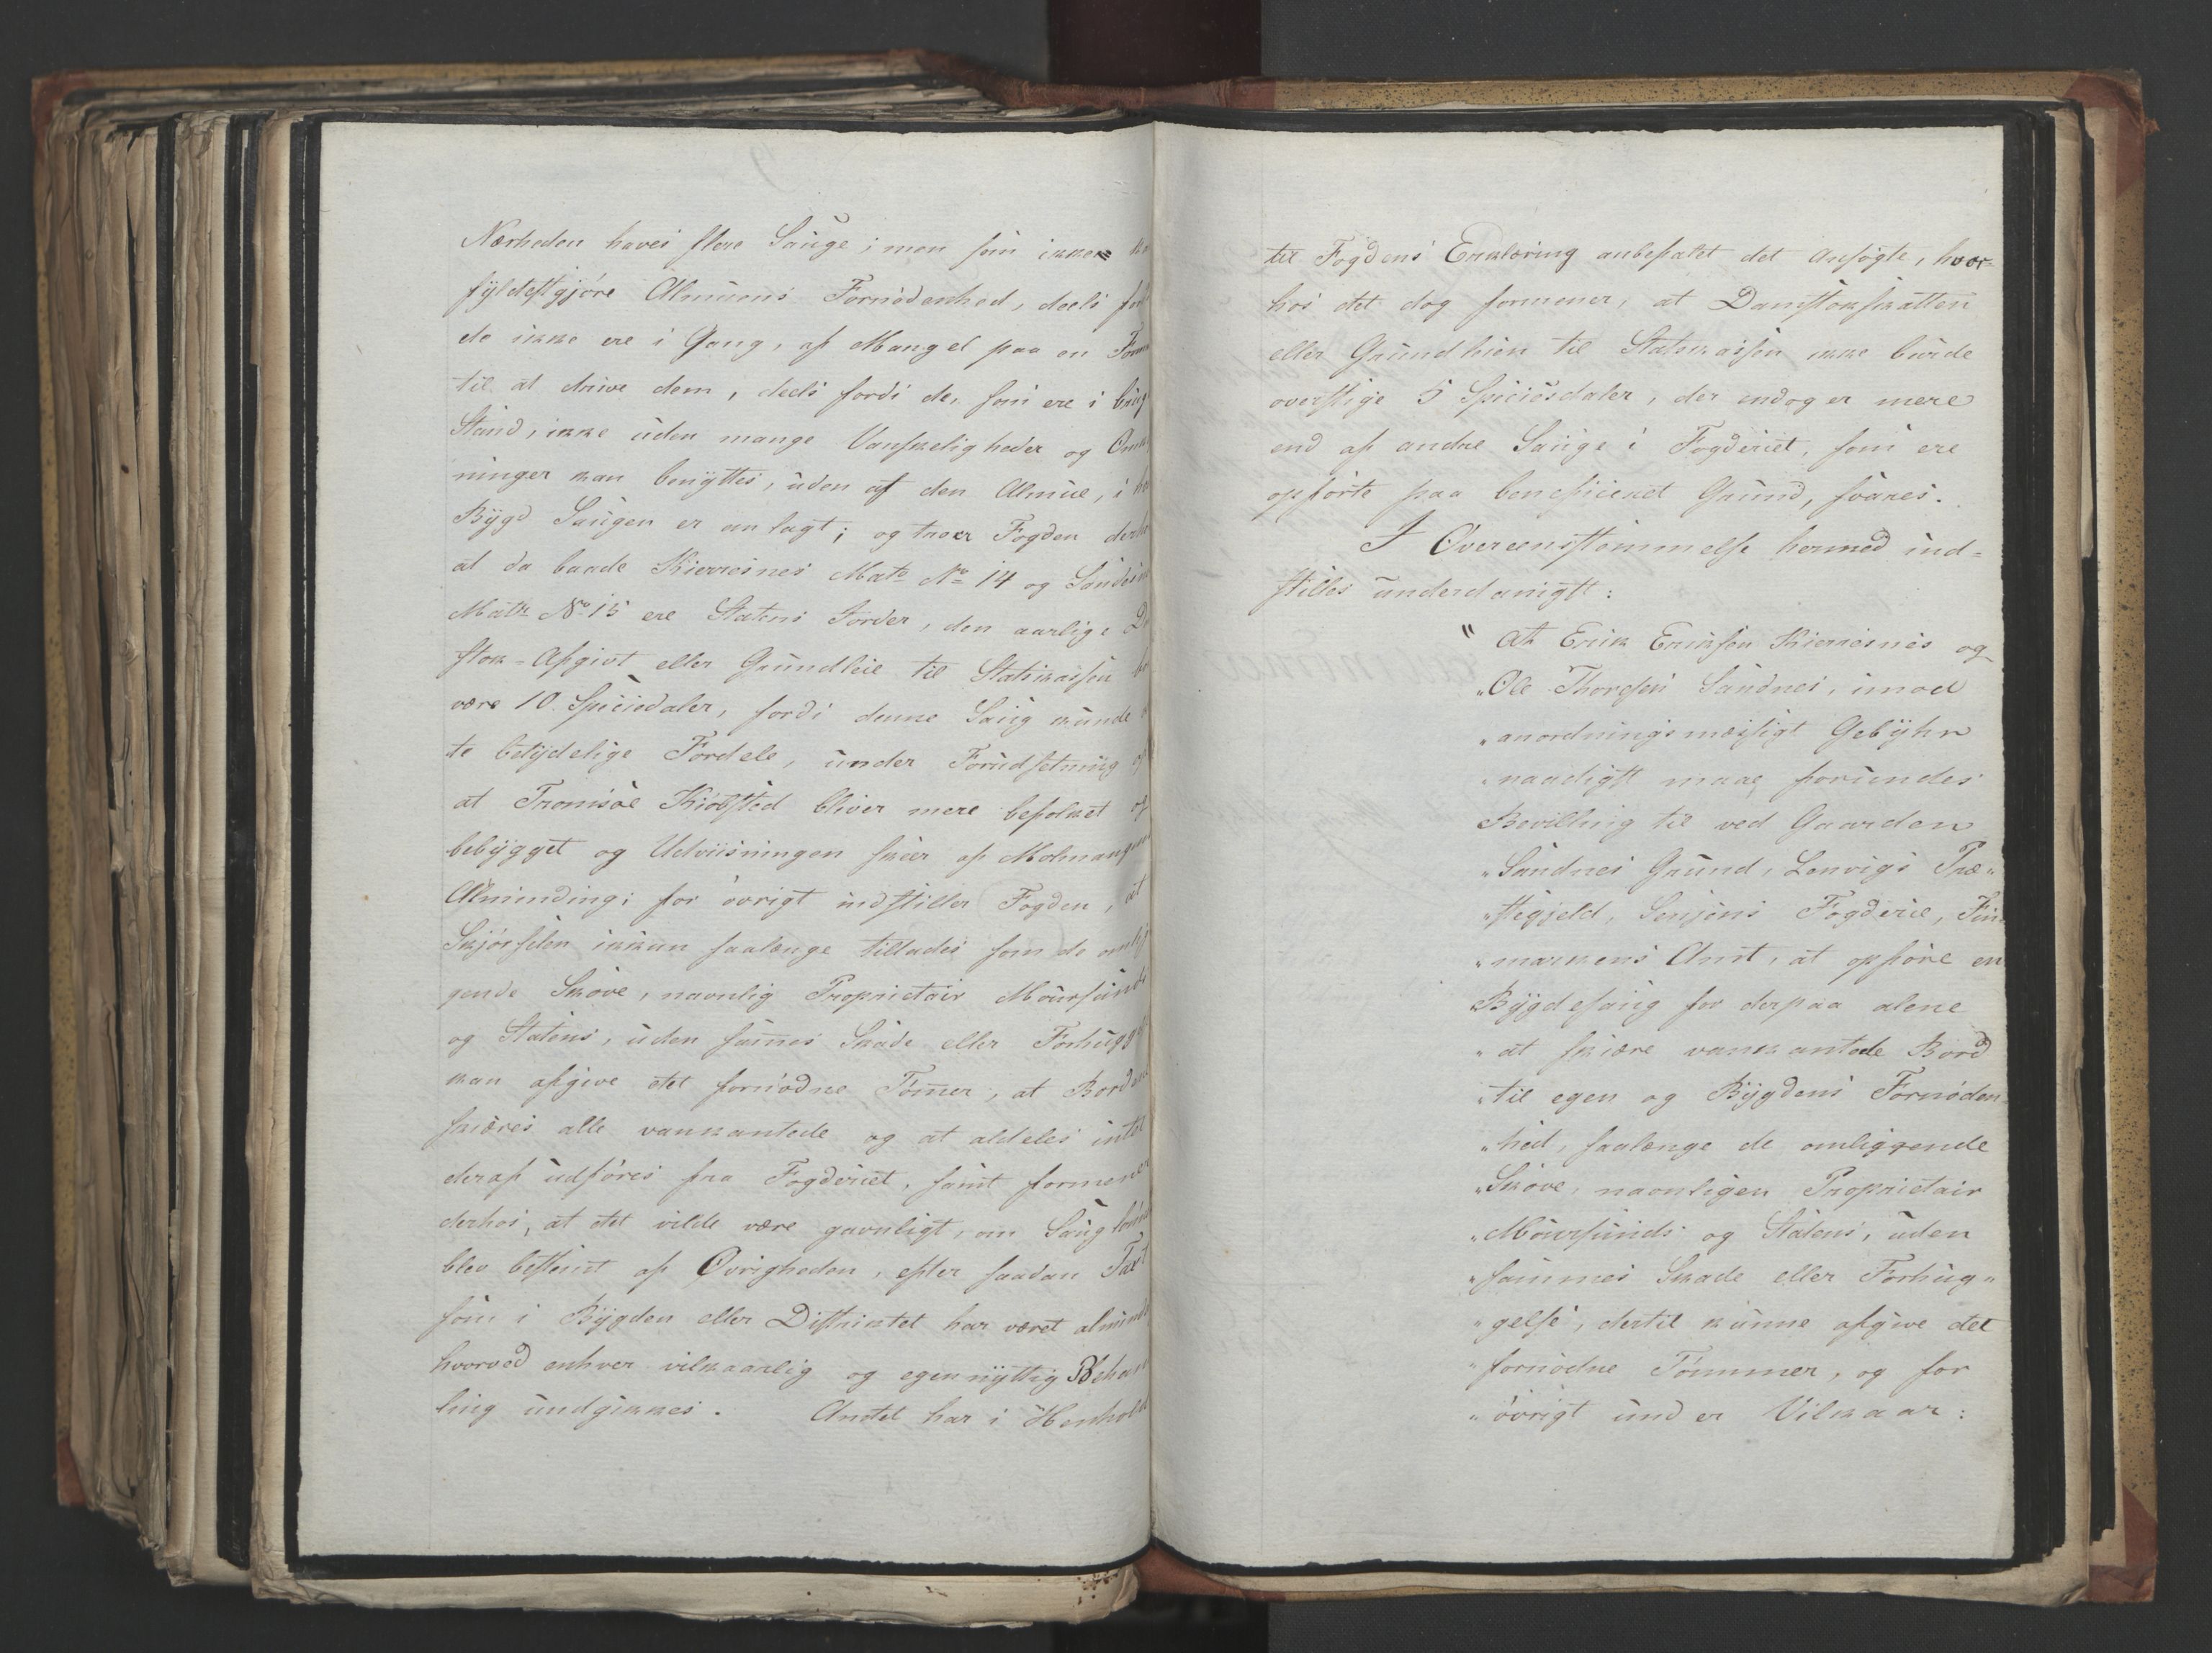 Nærheden haves flere Sauge; men som ikke
fyldestgjøre Almuens Fornødenhed, deels
de ikke ere i Gang, af Mangel paa en
til at drive dem, deels fordi de, som ere i
Stand, ikke uden mange Vanskeligheder og
ninger kan benyttes, uden af den Almue, i
Bygd Saugen er anlagt; og troer Fogden
at da baade Kierresnes Matr No 14 og
Matr No 15 ere Statens Jorder, den aarlige
stok-Afgivt eller Grundleie til Statskassen
være 10 Speciedaler, fordi denne Saug kunde
te betydelige Fordele, under Forudsetning
at Tromsøe Kiøbsted bliver mere befolket og
bebygget og Udviisningen skeer af
Alminding; for øvrigt indstiller Fogden, at
Skjørselen ikkun saalænge tillades som de
gende Skove, navnlig Proprietair Moursunds
og Statens, uden samnes Skade eller
kan afgive det fornødne Tømer, at
skiæres alle vankantede og at aldeles intet
deraf udføres fra Fogderiet, samt formener
derhos, at det vilde være gavnligt, om
blev bestemt af Øvrigheden, efter saadan Taxt
som i Bygden eller Distriktet har været
hvorved enhver vilkaarlig og egennyttig
ling undgikkes. Amtet har i Henhold
til Fogdens Erklæring anbefalet det Ansøgte, hvor-
hos det dog formener, at Damstokskatten
eller Grundleien til Statskassen ikke burde
overstige 5 Speciesdaler, der endog er mere
end af andre Sauge i Fogderiet, som ere
opførte paa beneficeret Grund, svares.
I Overeensstemmelse hermed ind=
stilles underdanigst:
" At Erik Eriksen Kierresnes og
" Ole Thoresen Sandnes, imod
" anordningsmæssigt Gebyhr
" naadigst maae forundes
Bevilling til ved Gaarden
" Sandnes Grund, Lenvigs Præ"
" stegjeld, Senjens Fogderie, Fin
" markens Amt, at opføre en
Bygdesaug for derpaa alene
" at skiære vankantede Bord
" til egen og Bygdens Fornøden
" hed, saalænge de omliggende
" Skove, navnligen Proprietair
" Moursunds og Statens, uden
" sammes Skade eller Forhug"
" gelse, dertil kunne afgive det
" fornødne Tømmer, og for
" øvrigt under Vilkaar: